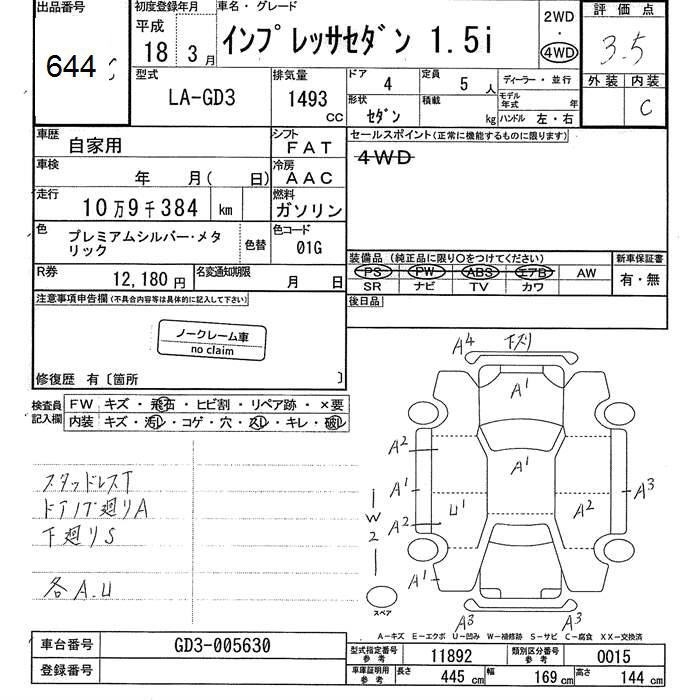 出品番号 初度登録年月 車名・グレード 2WD 評価点
644 平成 18 3月 インプレッサセダン 1.5i ・ 4WD 3.5
型式 排気量 ドア 4 定員 5人 ディーラー・並行 外装 内装
LA-GD3 1493 cc 形状 セダン 積載 kg モデル年式 年 C
ハンドル 左・右
車歴 自家用 シフト FAT セールスポイント(正常に機能するものに限ります)
車検 年 月( 日) 冷房 AAC 4WD
走行 10万9千384 km 燃料 ガソリン
色 プレミアムシルバー・メタリック 色替 色コード 01G
装備品(純正品に限り○をつけてください) 新車保証書
R券 12,180円 名変通知期限 月 日 PS PW ABS エアB AW 有・無
SR ナビ TV カワ
注意事項申告欄(不具合内容等は具体的に記入して下さい) 後日品
ノークレーム車
no claim
修復歴 有〔箇所 〕
検査員記入欄 FW キズ・飛石・ヒビ割・リペア跡・×要
内装 キズ・汚レ・コゲ・穴・スレ・キレ・破レ
A4 下ズリ
A1
A2
A1
A1 A3
U1 A2
A2
A1
A3 A3
スタッドレスT
ドアノブ廻りA
下廻りS
各A.U
W2
スペア
A-キズ E-エクボ U-凹み W-補修跡 S-サビ C-腐食 XX-交換済
車台番号 GD3-005630
型式指定番号 参考 11892 類別区分番号 参考 0015
登録番号
車庫証明用 参考 長さ 445cm 幅 169cm 高さ 144cm